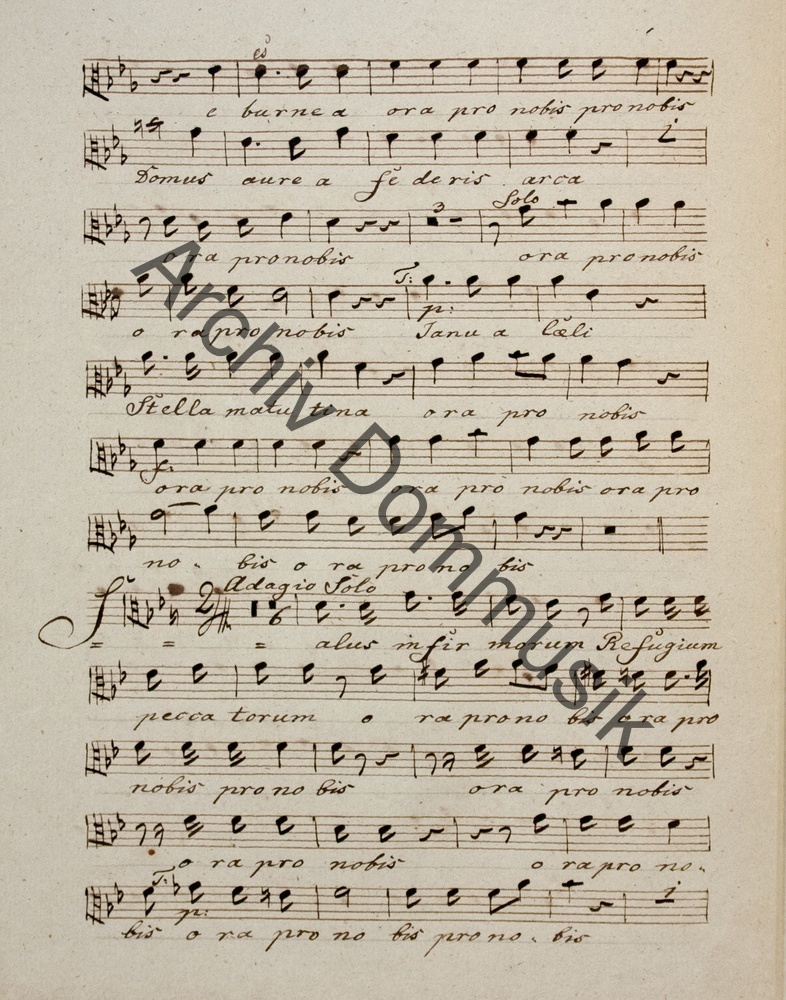 es
e burne a ora pro nobis pro nobis
Domus aure a fē de ris arca
Solo
3
o ra pro nobis ora pro nobis
T:
p:
o ra pro nobis Janu a Cœli
Stella matu tina ora pro nobis
f:
ora pro nobis ora pro nobis ora pro
no - bis o ra pro no bis
Adagio Solo
6
S = = = alus infir morum Refugium
pecca torum o ra pro no bis o ra pro
nobis pro no bis ora pro nobis
o ra pro nobis o ra pro no -
T:
p:
bis o ra pro no bis pro no - bis
Archiv Dommusik